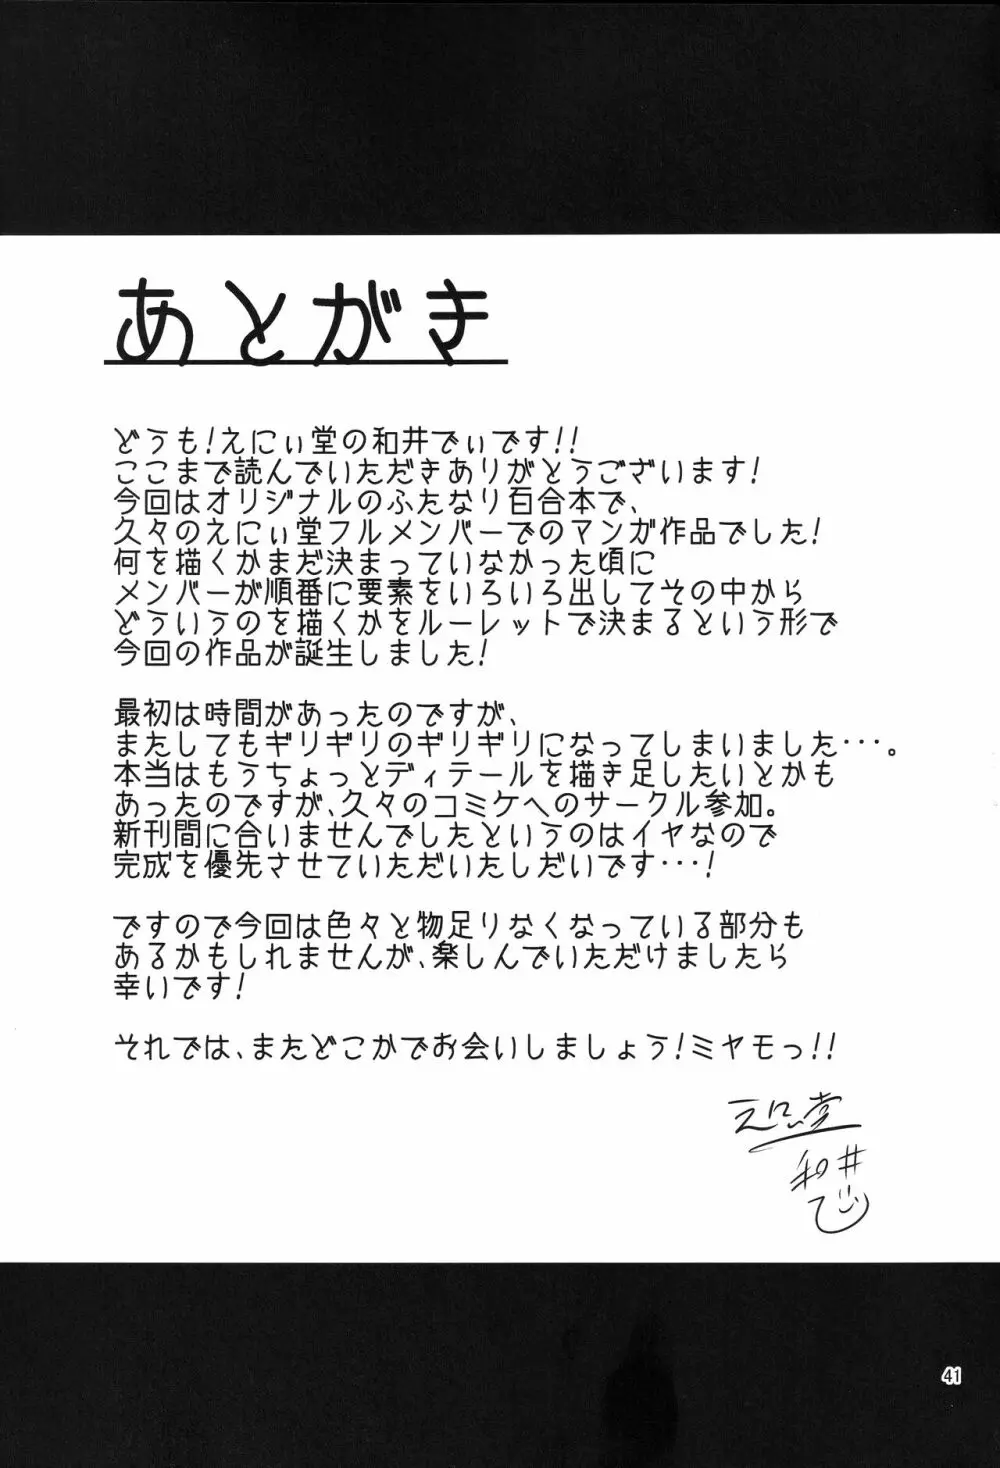 あとがき
どうも!えにぃ堂の和井でぃです!!
ここまで読んでいただきありがとうございます!
今回はオリジナルのふたなり百合本で、
久々のえにぃ堂フルメンバーでのマンガ作品でした!
何を描くかまだ決まっていなかった頃に
メンバーが順番に要素をいろいろ出してその中から
どういうのを描くかをルーレットで決まるという形で
今回の作品が誕生しました!
最初は時間があったのですが、
またしてもギリギリのギリギリになってしまいました・・・。
本当はもうちょっとディテールを描き足したいとかも
あったのですが、久々のコミケへのサークル参加。
新刊間に合いませんでしたというのはイヤなので
完成を優先させていただいたしだいです・・・!
ですので今回は色々と物足りなくなっている部分も
あるかもしれませんが、楽しんでいただけましたら
幸いです!
それでは、またどこかでお会いしましょう!ミヤモっ!!
えにぃ堂
和井
でぃ
41